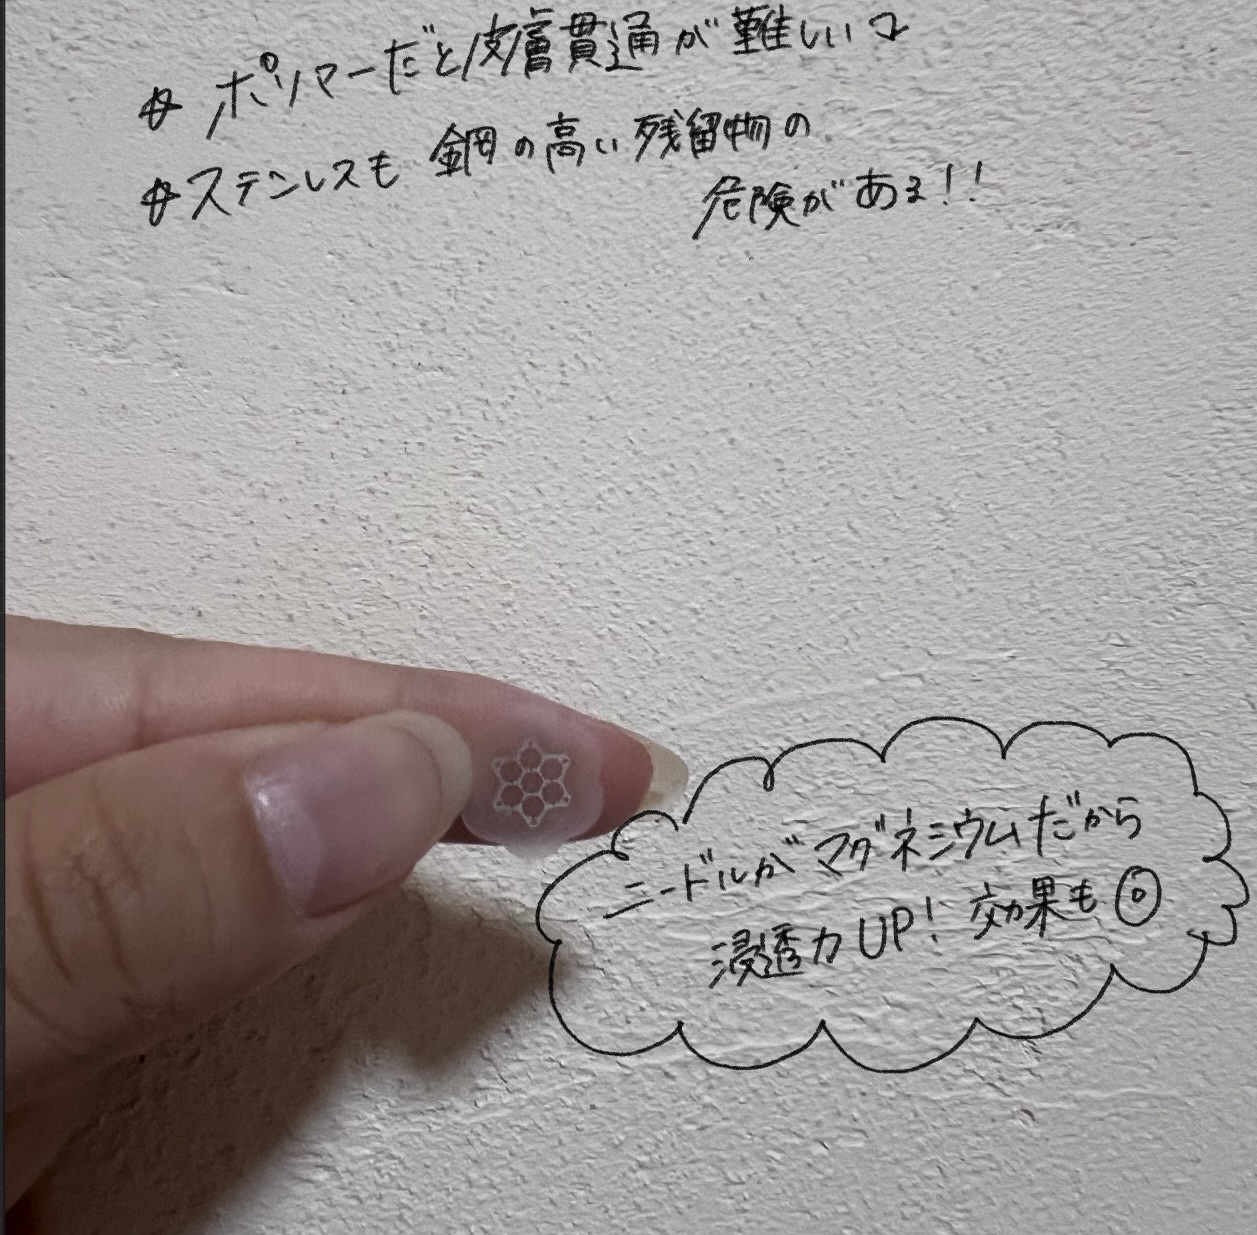 ポリマーだと皮膚貫通が難しい
ステンレスも 鋼の高い残留物の
危険がある!!
ニードルがマグネシウムだから
浸透力UP! 効果も◎